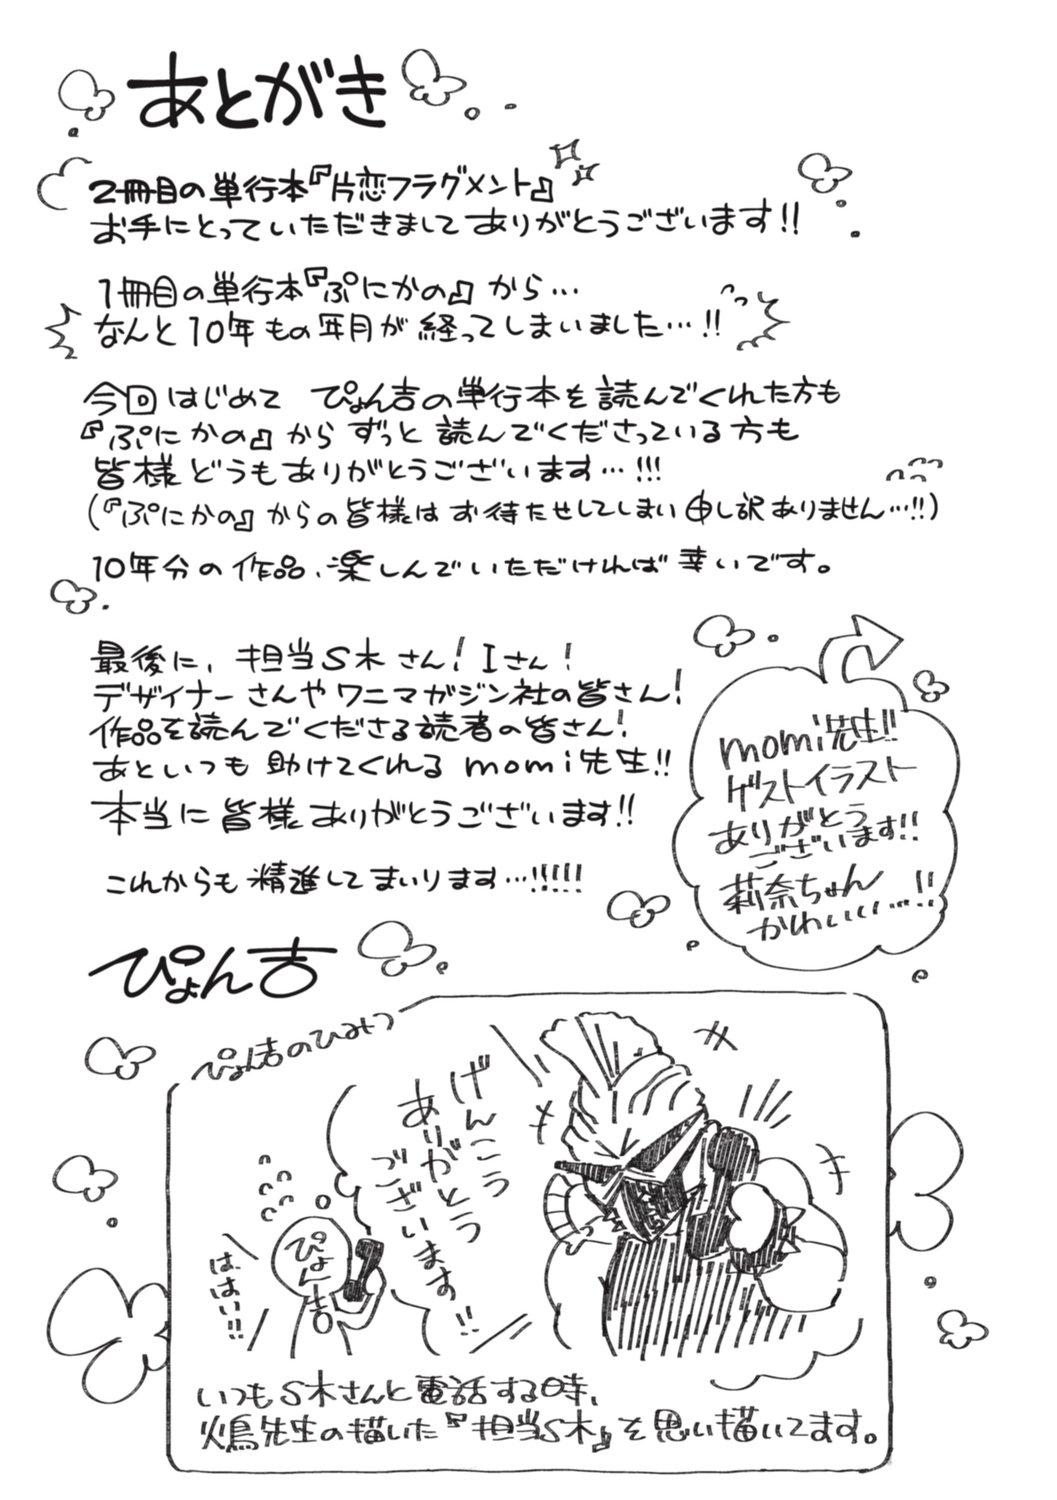 あとがき
2冊目の単行本『片恋フラグメント』
お手にとっていただきましてありがとうございます!!
1冊目の単行本『ぷにかの』から…
なんと10年もの年月が経ってしまいました…!!
今回はじめて ぴょん吉の単行本を読んでくれた方も
『ぷにかの』からずっと読んでくださっている方も
皆様どうもありがとうございます…!!!
(『ぷにかの』からの皆様はお待たせしてしまい申し訳ありません…!!)
10年分の作品、楽しんでいただければ幸いです。
最後に、担当S木さん! Iさん!
デザイナーさんやワニマガジン社の皆さん!
作品を読んでくださる読者の皆さん!
あといつも助けてくれるmomi先生!!
本当に皆様ありがとうございます!!
これからも精進してまいります…!!!!!
momi先生!!
ゲストイラスト
ありがとう
ございます!!
莉奈ちゃん
かわいい…!!
ぴょん吉
ぴょん吉のひみつ
げんこう
ありがとう
ございます!!
ぴょん吉
は、はい!!
いつもS木さんと電話する時、
火鳥先生の描いた『担当S木』を思い描いてます。